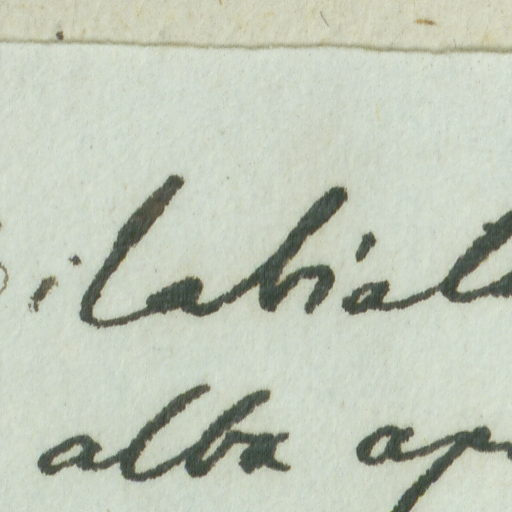 ilabiat
alba ap